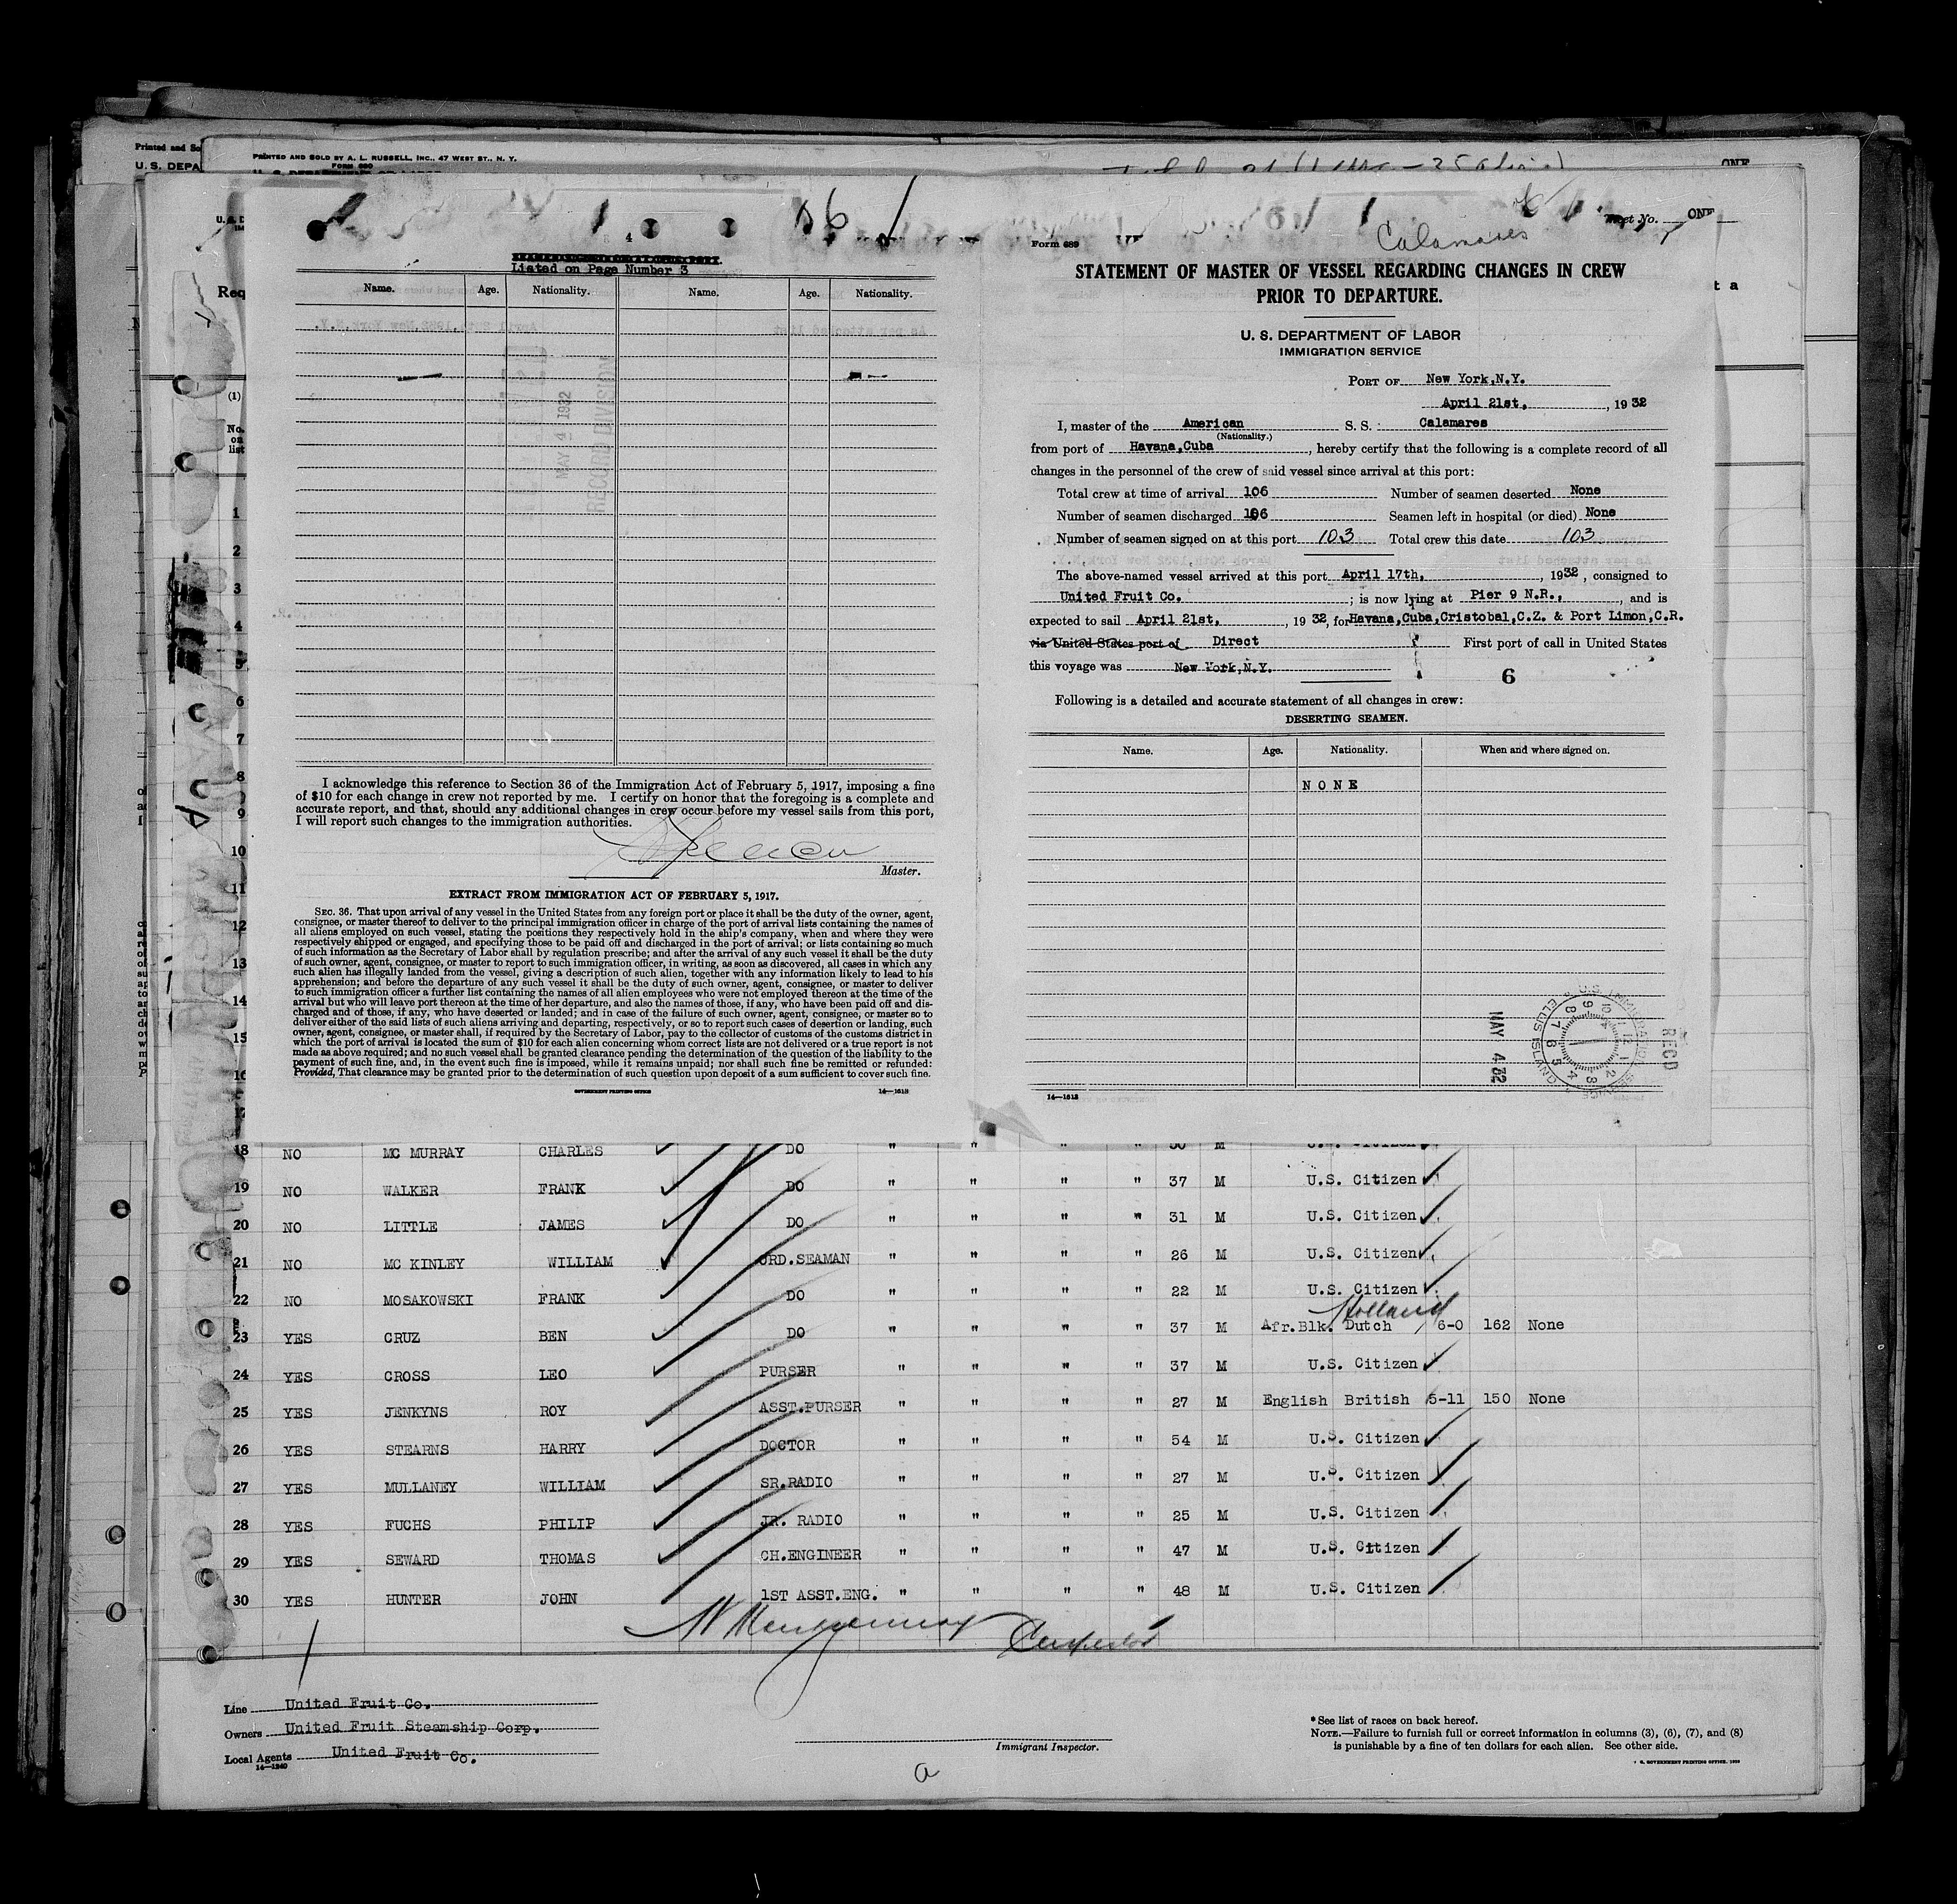 Printed and So
U. S. DEPA
PRINTED AND SOLD BY A. L. RUSSELL, INC., 47 WEST ST., N. Y.
Form 680
ONE
4
Listed on Page Number 3
Name. Age. Nationality. Name. Age. Nationality.
MAY 4 1932
RECORD DIVISION
I acknowledge this reference to Section 36 of the Immigration Act of February 5, 1917, imposing a fine
of $10 for each change in crew not reported by me. I certify on honor that the foregoing is a complete and
accurate report, and that, should any additional changes in crew occur before my vessel sails from this port,
I will report such changes to the immigration authorities.
Master.
EXTRACT FROM IMMIGRATION ACT OF FEBRUARY 5, 1917.
SEC. 36. That upon arrival of any vessel in the United States from any foreign port or place it shall be the duty of the owner, agent,
consignee, or master thereof to deliver to the principal immigration officer in charge of the port of arrival lists containing the names of
all aliens employed on such vessel, stating the positions they respectively hold in the ship's company, when and where they were
respectively shipped or engaged, and specifying those to be paid off and discharged in the port of arrival; or lists containing so much
of such information as the Secretary of Labor shall by regulation prescribe; and after the arrival of any such vessel it shall be the duty
of such owner, agent, consignee, or master to report to such immigration officer, in writing, as soon as discovered, all cases in which any
such alien has illegally landed from the vessel, giving a description of such alien, together with any information likely to lead to his
apprehension; and before the departure of any such vessel it shall be the duty of such owner, agent, consignee, or master to deliver
to such immigration officer a further list containing the names of all alien employees who were not employed thereon at the time of the
arrival but who will leave port thereon at the time of her departure, and also the names of those, if any, who have been paid off and dis-
charged and of those, if any, who have deserted or landed; and in case of the failure of such owner, agent, consignee, or master so to
deliver either of the said lists of such aliens arriving and departing, respectively, or so to report such cases of desertion or landing, such
owner, agent, consignee, or master shall, if required by the Secretary of Labor, pay to the collector of customs of the customs district in
which the port of arrival is located the sum of $10 for each alien concerning whom correct lists are not delivered or a true report is not
made as above required; and no such vessel shall be granted clearance pending the determination of the question of the liability to the
payment of such fine, and, in the event such fine is imposed, while it remains unpaid; nor shall such fine be remitted or refunded:
Provided, That clearance may be granted prior to the determination of such question upon deposit of a sum sufficient to cover such fine.
GOVERNMENT PRINTING OFFICE 14—1513
Calamares
Sheet No. ONE
Form 689
STATEMENT OF MASTER OF VESSEL REGARDING CHANGES IN CREW
PRIOR TO DEPARTURE.
U. S. DEPARTMENT OF LABOR
IMMIGRATION SERVICE
PORT OF New York,N.Y.
April 21st, , 19 32
I, master of the American S. S. Calamares
(Nationality.)
from port of Havana,Cuba , hereby certify that the following is a complete record of all
changes in the personnel of the crew of said vessel since arrival at this port:
Total crew at time of arrival 106 Number of seamen deserted None
Number of seamen discharged 106 Seamen left in hospital (or died) None
Number of seamen signed on at this port 103 Total crew this date 103
The above-named vessel arrived at this port April 17th, , 1932 , consigned to
United Fruit Co. ; is now lying at Pier 9 N.R., , and is
expected to sail April 21st, , 19 32, for Havana,Cuba,Cristobal,C.Z. & Port Limon,C.R.
via United States port of Direct First port of call in United States
this voyage was New York,N.Y.
6
Following is a detailed and accurate statement of all changes in crew:
DESERTING SEAMEN.
Name. Age. Nationality. When and where signed on.
NONE
MAY 4 32
U.S. IMMIGRATION SERVICE ELLIS ISLAND
RECD
14—1513
18 NO MC MURRAY CHARLES DO " " " " 30 M U.S. Citizen
19 NO WALKER FRANK DO " " " " 37 M U.S. Citizen
20 NO LITTLE JAMES DO " " " " 31 M U.S. Citizen
21 NO MC KINLEY WILLIAM ORD.SEAMAN " " " " 26 M U.S. Citizen
22 NO MOSAKOWSKI FRANK DO " " " " 22 M U.S. Citizen
Holland
23 YES CRUZ BEN DO " " " " 37 M Afr.Blk. Dutch 6-0 162 None
24 YES CROSS LEO PURSER " " " " 37 M U.S. Citizen
25 YES JENKYNS ROY ASST.PURSER " " " " 27 M English British 5-11 150 None
26 YES STEARNS HARRY DOCTOR " " " " 54 M U.S. Citizen
27 YES MULLANEY WILLIAM SR.RADIO " " " " 27 M U.S. Citizen
28 YES FUCHS PHILIP JR. RADIO " " " " 25 M U.S. Citizen
29 YES SEWARD THOMAS CH.ENGINEER " " " " 47 M U.S. Citizen
30 YES HUNTER JOHN 1ST ASST.ENG. " " " " 48 M U.S. Citizen
Line United Fruit Co.
Owners United Fruit Steamship Corp.
Local Agents United Fruit Co.
14—1240
Immigrant Inspector.
a
* See list of races on back hereof.
NOTE.—Failure to furnish full or correct information in columns (3), (6), (7), and (8)
is punishable by a fine of ten dollars for each alien. See other side.